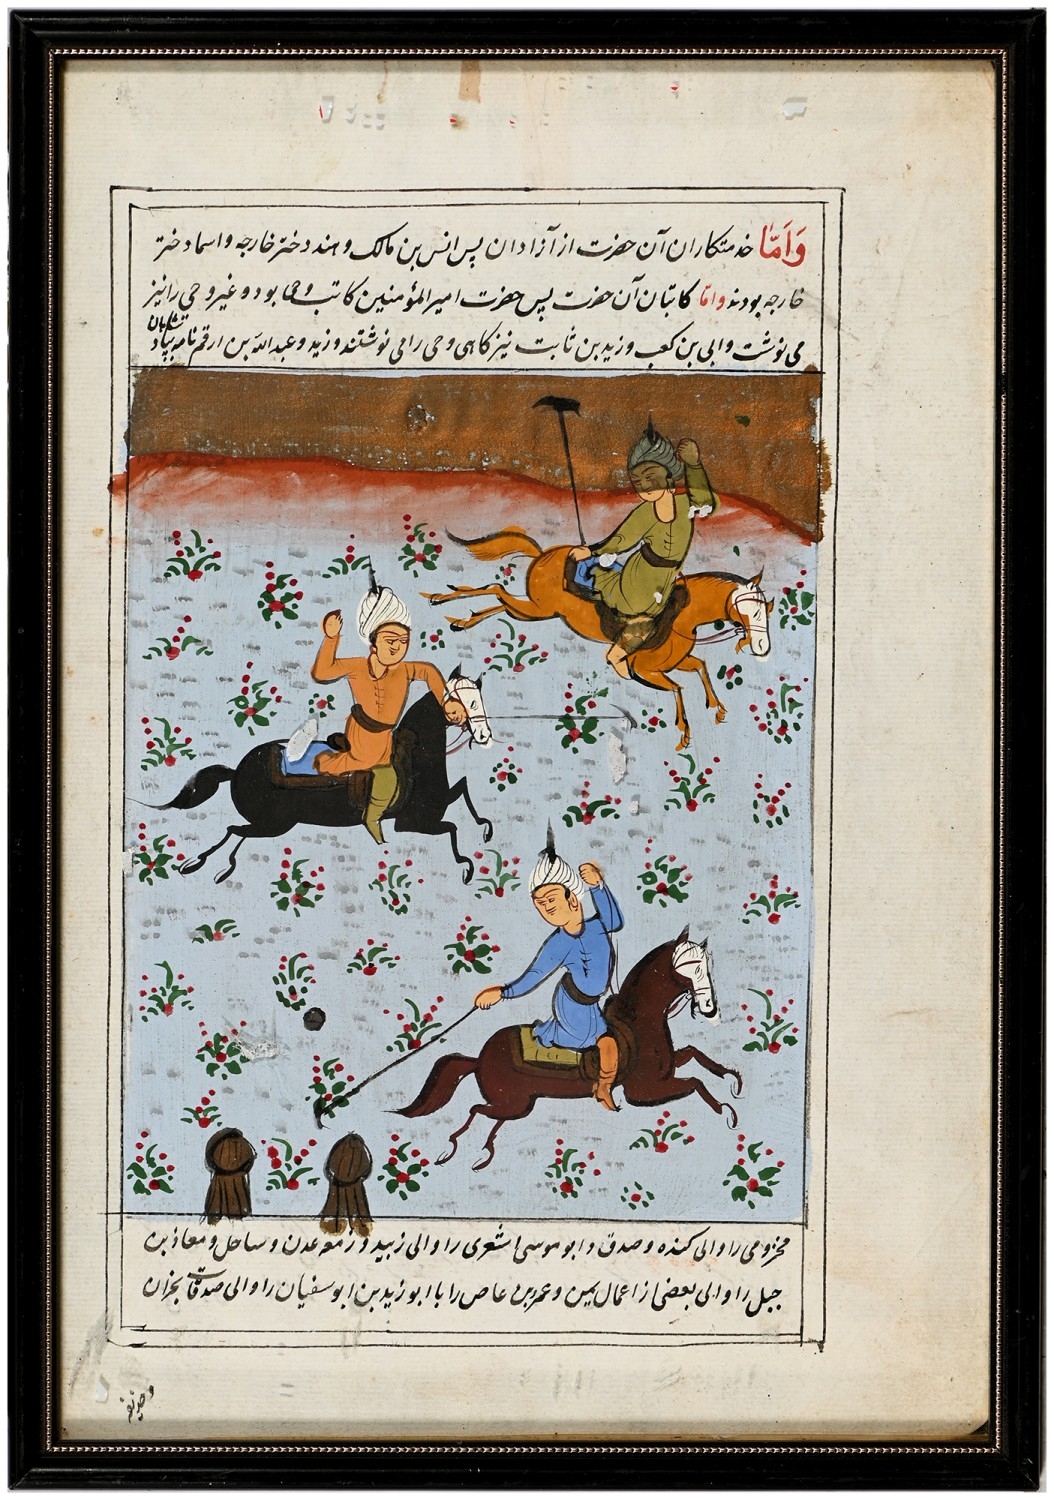 وَاَمّا خدمتکاران آن حضرت از آزادان پس انس بن مالک و هند دختر خارجه و اسما دختر
خارجه بودند و امّا کاتبان آن حضرت پس حضرت امیرالمؤمنین کاتب وحی بود و غیر وحی را نیز
می نوشت و ابی بن کعب و زید بن ثابت نیز گاهی وحی را می نوشتند و زید و عبداللّه بن ارقم نامه بپادشاهان
مخزومی را والی کنده و صدق و ابو موسی اشعری را والی زبید و زمعه عدن و ساحل و معاذ بن
جبل را والی بعضی از اعمال یمن و عمرو بن عاص را با ابو زید بن ابو سفیان را والی صدقات نجران